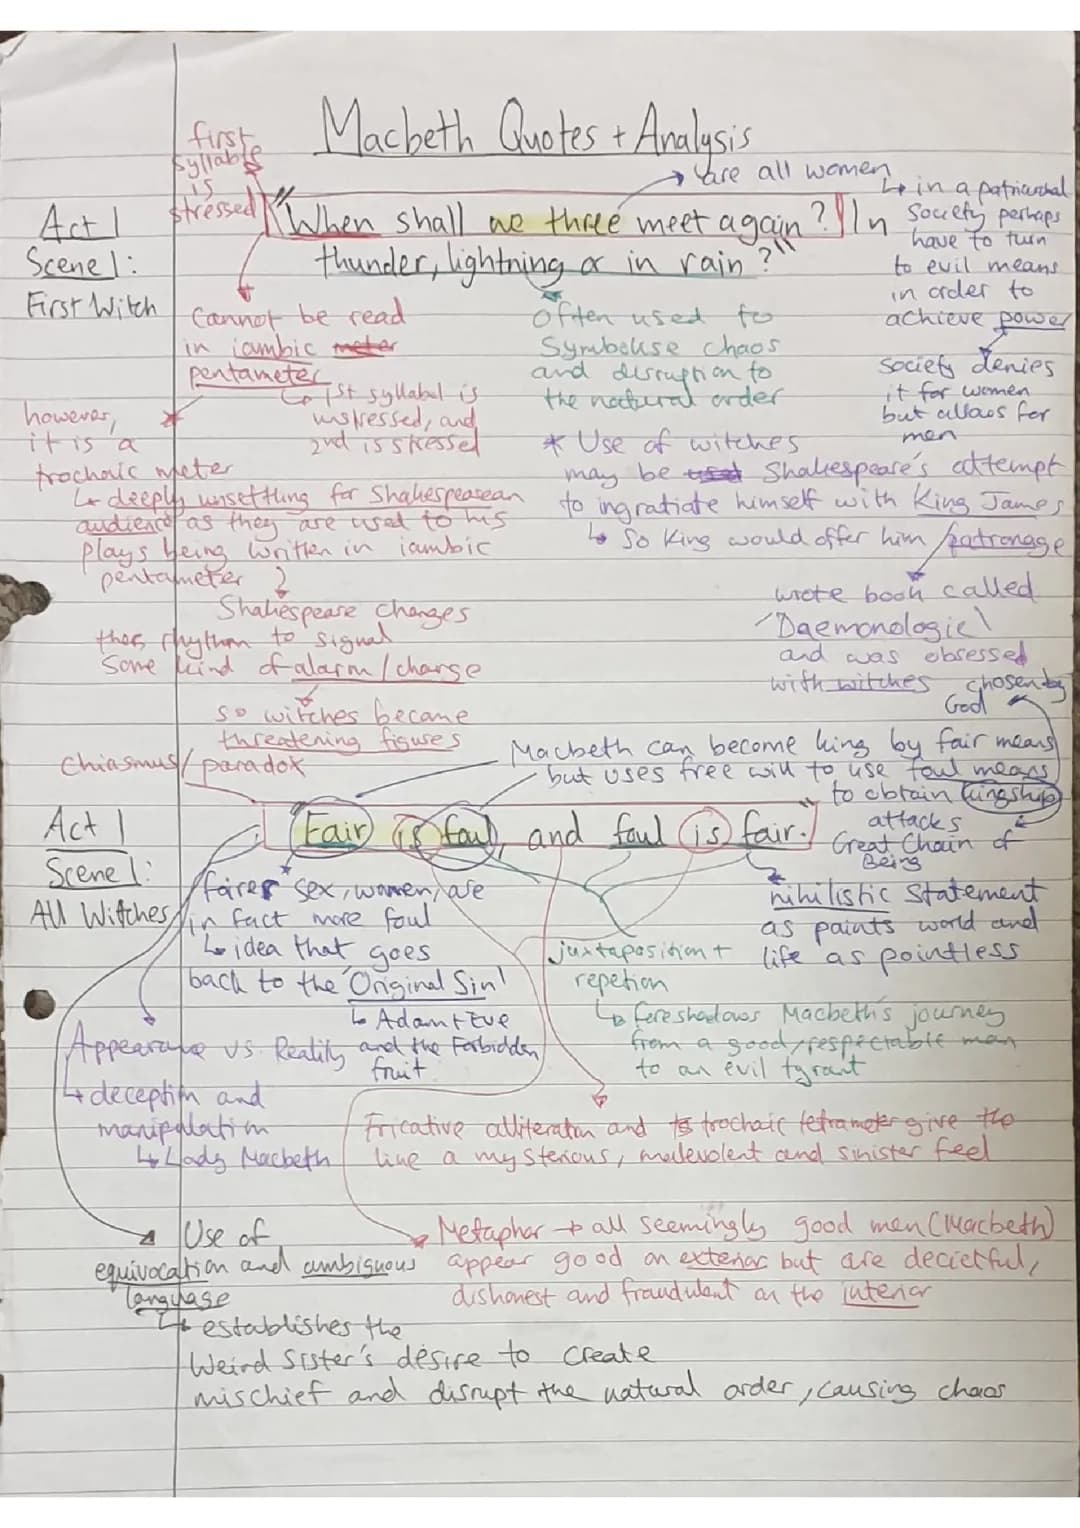 Macbeth Quotes + Analysis
first
syllable
is
stressed
are all women
in a patriarchal
Society perhaps
have to turn
to evil means
in order to
achieve power
society denies
it for women
but allows for
men
Act 1
Scene 1:
First Witch
"When shall we three meet again? In
thunder, lightning or in rain?"
Cannot be read
in iambic meter
pentameter
1st syllabel is
unstressed, and
2nd is stressed
however,
it is a
trochaic meter
deeply unsettling for Shakespearean
audience as they are used to his
plays being written in iambic
pentameter
Shakespeare changes
the rhythm to signal
some kind of alarm/change
so witches become
threatening figures
Often used to
Symbolise chaos
and disruption to
the natural order
* Use of witches
may be used Shakespeare's attempt
to ingratiate himself with King James
So King would offer him patronage
wrote book called
'Daemonologie'
and was obsessed
with witches
chosen by
God
Chiasmus/paradox
Macbeth can become king by fair means
but uses free will to use foul means
to obtain kingship
attacks
Great Chain of
Being
Act 1
Scene 1:
All Witches
"Fair is foul, and foul is fair."
fairer sex, women, are
in fact more foul
idea that goes
back to the 'Original Sin'
Adam + Eve
and the Forbidden
fruit
nihilistic statement
as paints world and
life as pointless
juxtaposition +
repetion
foreshadows Macbeth's journey
from a good/respectable man
to an evil tyrant
Appearance vs. Reality
deception and
manipulation
Lady Macbeth
Fricative alliteration and trochaic tetrameter give the
line a mysterious, malevolent and sinister feel
Metaphor → all seemingly good men (Macbeth)
appear good on exterior but are decietful,
dishonest and fraudulent on the interior
Use of
equivocation and ambiguous
language
establishes the
Weird Sister's desire to create
mischief and disrupt the natural order, causing chaos